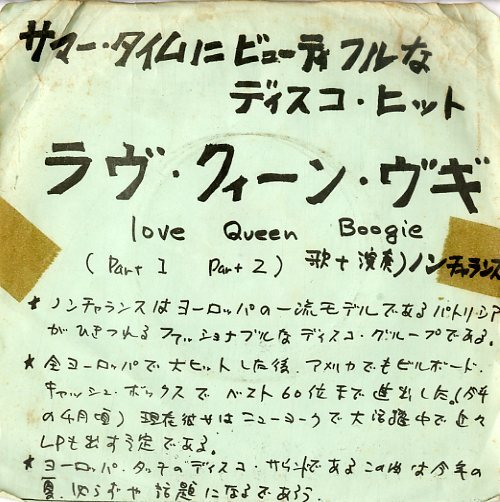 サマー・タイムにビューティフルな
ディスコ・ヒット
ラヴ・クィーン・ヴギ
love Queen Boogie
(Part 1 Part 2) 歌+演奏)ノンチャランス
* ノンチャランスはヨーロッパの一流モデルであるパトリシア
がひきつれるファッショナブルなディスコ・グループである。
* 全ヨーロッパで大ヒットした後、アメリカでもビルボード、
キャッシュ・ボックスでベスト60位まで進出した。(今年
の4月頃) 現在彼女はニューヨークで大活躍中で近々
LPも出す予定である。
* ヨーロッパ・タッチのディスコ・サウンドであるこの曲は今年の
夏、必らずや話題になるであろう